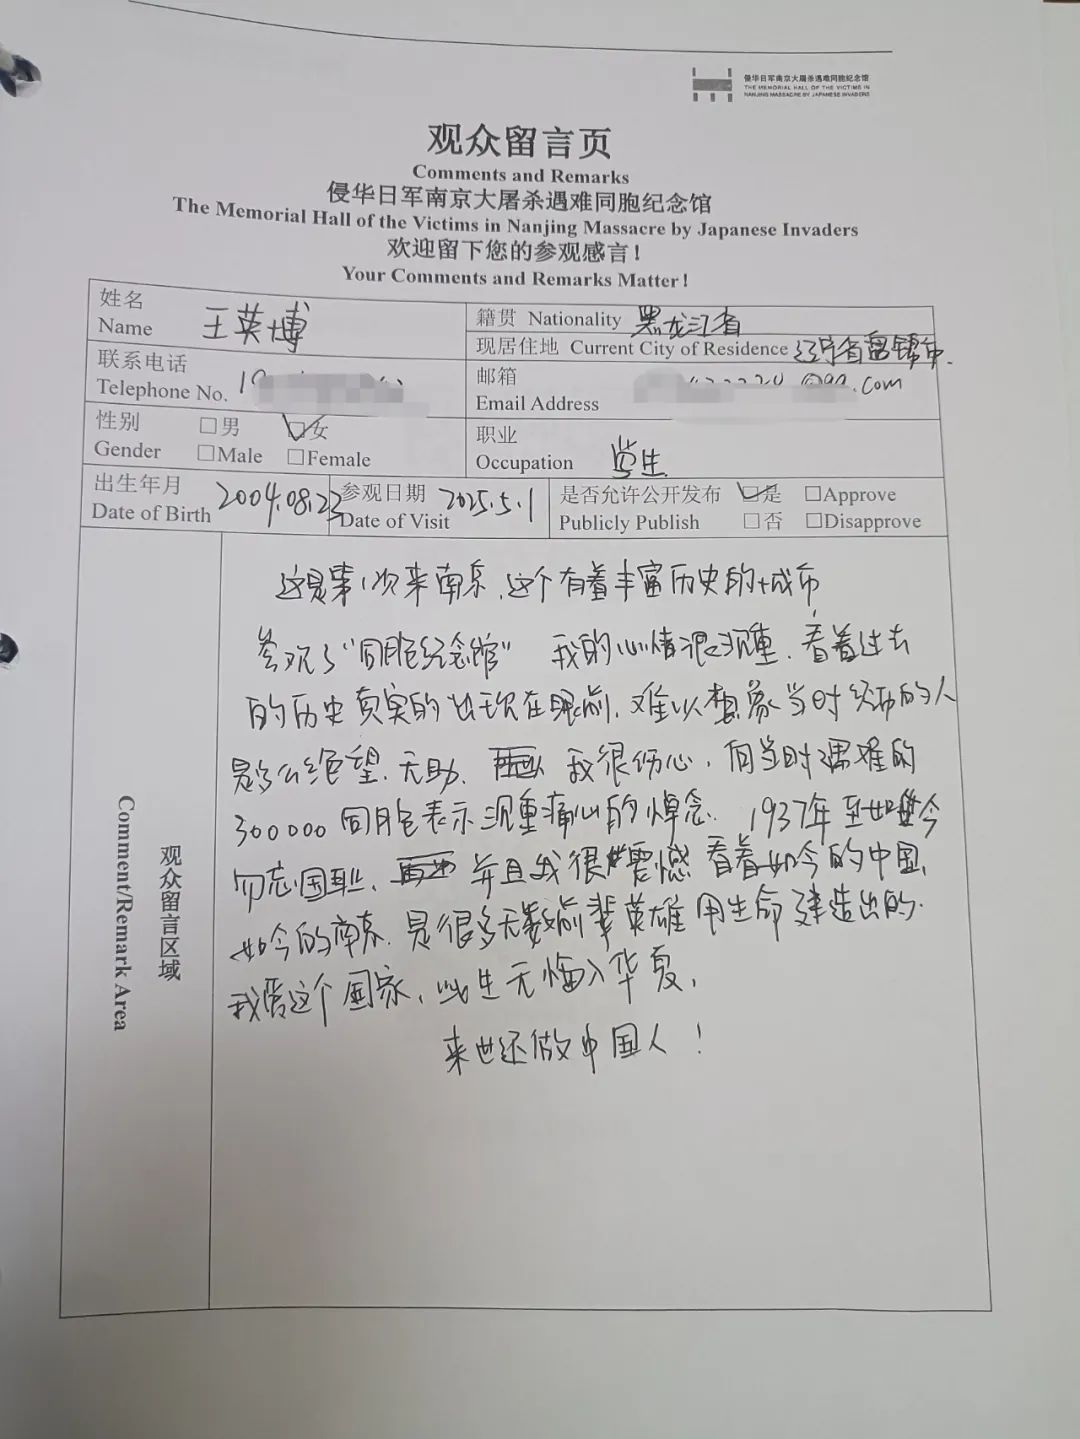 侵华日军南京大屠杀遇难同胞纪念馆
THE MEMORIAL HALL OF THE VICTIMS IN
NANJING MASSACRE BY JAPANESE INVADERS
观众留言页
Comments and Remarks
侵华日军南京大屠杀遇难同胞纪念馆
The Memorial Hall of the Victims in Nanjing Massacre by Japanese Invaders
欢迎留下您的参观感言！
Your Comments and Remarks Matter!
姓名
Name 王英博
籍贯 Nationality 黑龙江省
现居住地 Current City of Residence 辽宁省盘锦市.
联系电话
Telephone No.
邮箱 @qq.com
Email Address
性别 □男 □女
Gender □Male □Female
职业
Occupation 学生
出生年月
Date of Birth 2004.08.23
参观日期
Date of Visit 2025.5.1
是否允许公开发布 □是 □Approve
Publicly Publish □否 □Disapprove
观众留言区域
Comment/Remark Area
这是第1次来南京,这个有着丰富历史的城市
参观了"同胞纪念馆" 我的心情很沉重,看着过去
的历史真实的出现在眼前,难以想象当时经历的人
是多么绝望,无助, 我很伤心,向当时遇难的
300000同胞表示沉重痛心的悼念. 1937年至如今
勿忘国耻, 并且我很震憾 看着如今的中国,
如今的南京,是很多无数前辈英雄用生命建造出的.
我爱这个国家,此生无悔入华夏,
来世还做中国人!